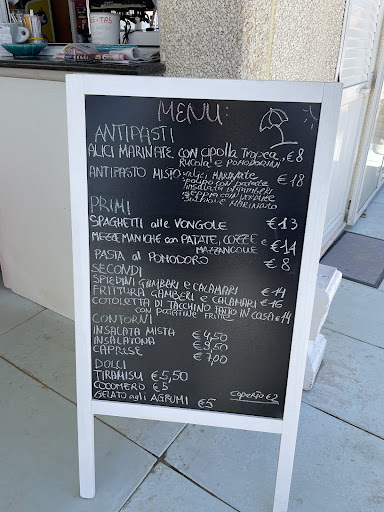 MENU:
ANTIPASTI
ALICI MARINATE con cipolla Tropea, €8
RUCOLA e POMODORINI
ANTIPASTO MISTO: alici MARINATE €18
polipo con patate
insalata di gamberi
seppia con verdure
salmone MARINATO
PRIMI
SPAGHETTI alle VONGOLE €13
MEZZEMANICHE con PATATE, COZZE e €14
MAZZANCOLLE
PASTA al POMODORO €8
SECONDI
SPIEDINI GAMBERI e CALAMARI €14
FRITTURA GAMBERI e CALAMARI €16
COTOLETTA DI TACCHINO FATTO IN CASA €14
con PATATINE FRITTE
CONTORNI
INSALATA MISTA €4,50
INSALATONA €9,50
CAPRESE €7,00
DOLCI
TIRAMISU €5,50
COCOMERO €5
GELATO agli AGRUMI €5
Coperto €2